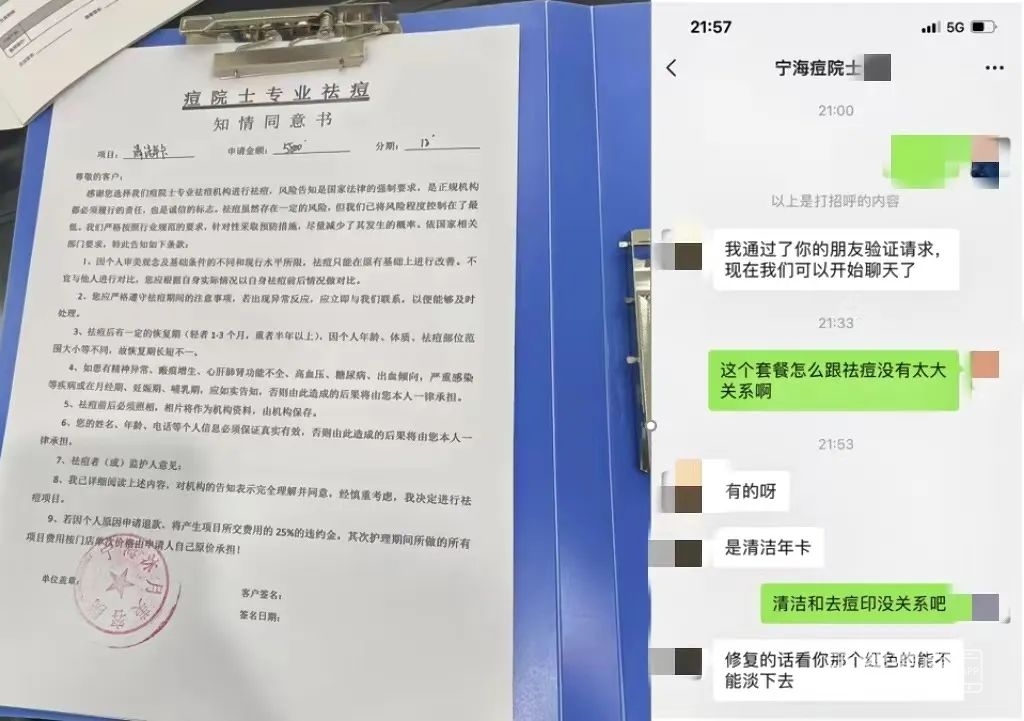 痘院士专业祛痘
知情同意书
项目: 清洁卡 申请金额: 5800 分期: 12
尊敬的客户:
感谢您选择我们痘院士专业祛痘机构进行祛痘, 风险告知是国家法律的强制要求, 是正规机构
都必须履行的责任, 也是诚信的标志。祛痘虽然存在一定的风险, 但我们已将风险程度控制在了最
低。我们严格按照行业规范的要求, 针对性采取预防措施, 尽量减少了其发生的概率。依国家相关
部门要求, 特此告知如下条款:
1、因个人审美观念及基础条件的不同和现行水平所限, 祛痘只能在原有基础上进行改善, 不
宜与他人进行对比。您应根据自身实际情况以自身祛痘前后情况做对比。
2、您应严格遵守祛痘期间的注意事项, 若出现异常反应, 应立即与我们联系, 以便能够及时
处理。
3、祛痘后有一定的恢复期（轻者1-3个月, 重者半年以上）, 因个人年龄、体质、祛痘部位范
围大小等不同, 故恢复期长短不一、
4、如患有精神异常、瘢痕增生、心肝肺肾功能不全、高血压、糖尿病、出血倾向, 严重感染
等疾病或在月经期、妊娠期、哺乳期, 应如实告知, 否则由此造成的后果将由您本人一律承担。
5、祛痘前后必须照相, 相片将作为机构资料, 由机构保存。
6、您的姓名、年龄、电话等个人信息必须保证真实有效, 否则由此造成的后果将由您本人一
律承担。
7、祛痘者（或）监护人意见:
8、我已详细阅读上述内容, 对机构的告知表示完全理解并同意, 经慎重考虑, 我决定进行祛
痘项目。
9、若因个人原因申请退款、将产生项目所交费用的25%的违约金, 其次护理期间所做的所有
项目费用按门店单次价格由申请人自己原价承担!
单位盖章:
客户签名:
签名日期:
21:57 5G
宁海痘院士
21:00
以上是打招呼的内容
我通过了你的朋友验证请求,
现在我们可以开始聊天了
21:33
这个套餐怎么跟祛痘没有太大
关系啊
21:53
有的呀
是清洁年卡
清洁和去痘印没关系吧
修复的话看你那个红色的能不
能淡下去